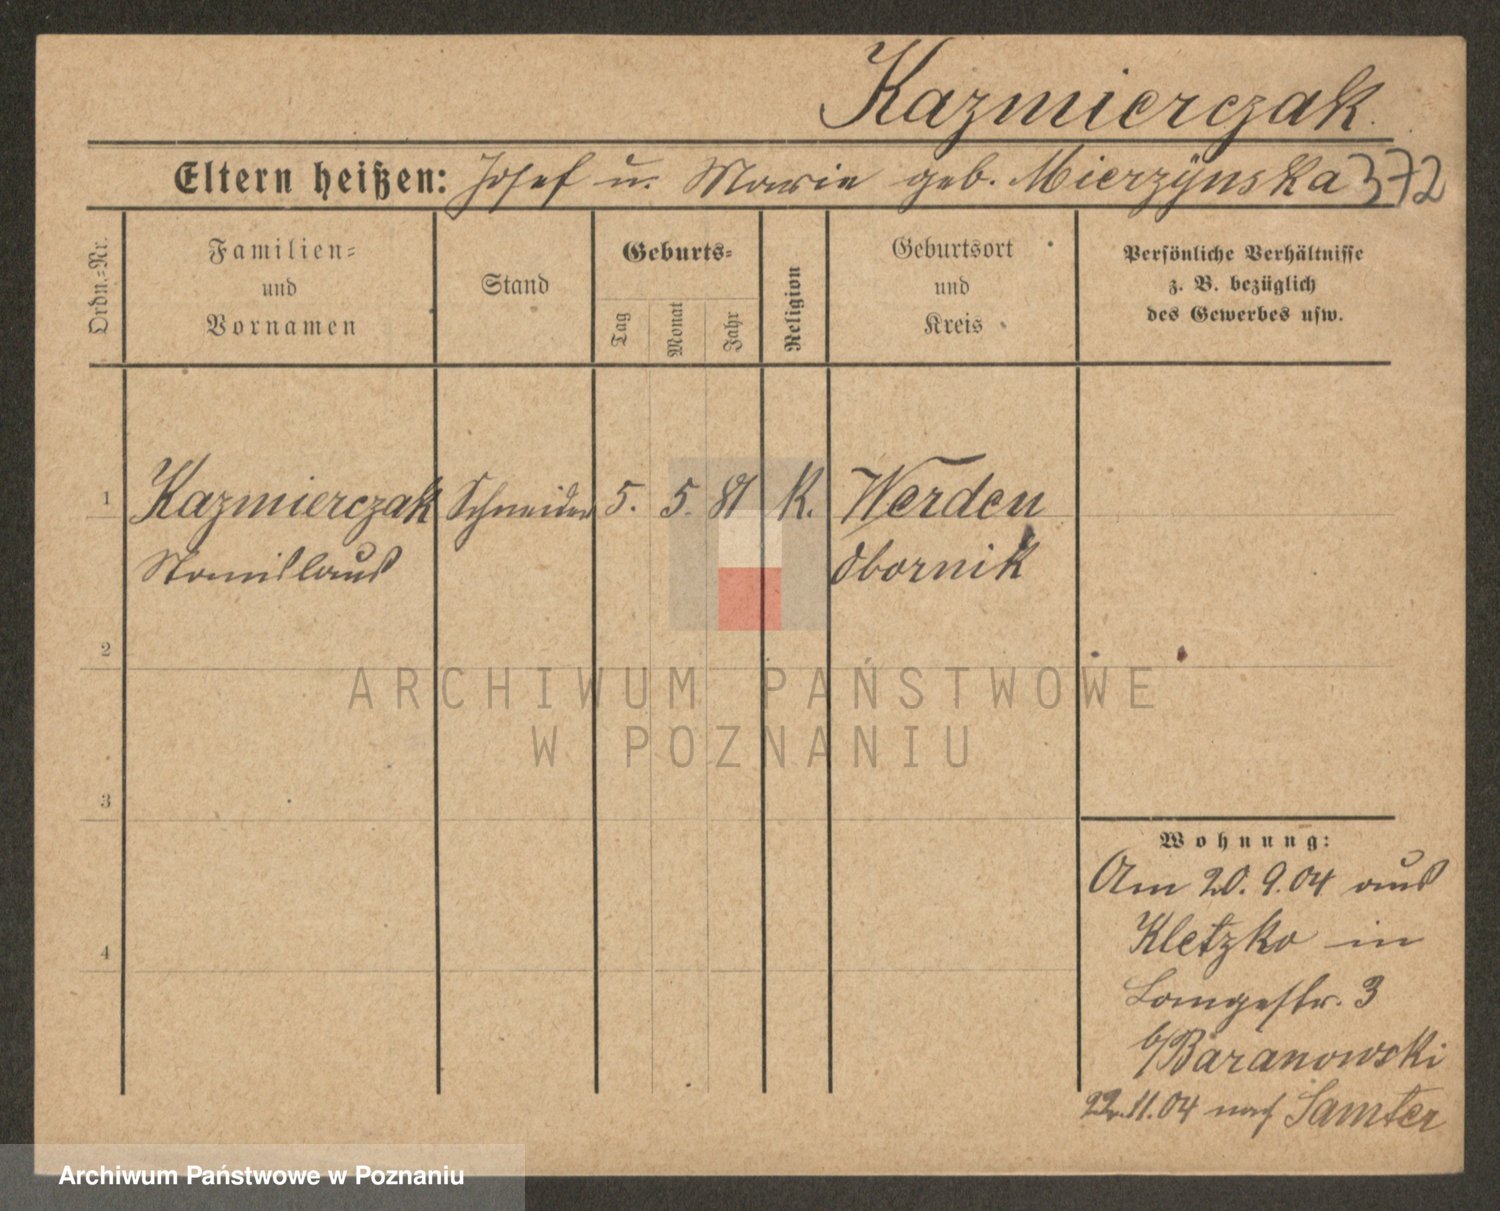 Kazmierczak.
Eltern heißen: Josef u. Marie geb. Mierzynska 372
Ordn.=Nr.
Familien=
und
Vornamen
Stand
Geburts=
Tag
Monat
Jahr
Religion
Geburtsort
und
Kreis
Persönliche Verhältnisse
z. B. bezüglich
des Gewerbes usw.
1 Kazmierczak Schneider 5. 5. 81 K. Werden
Stanislaus Obornik
2
3
4
Wohnung:
Am 20.9.04 aus
Kletzko in
Langestr. 3
b/Baranowski
22.11.04 nach Samter
ARCHIWUM PAŃSTWOWE
W POZNANIU
Archiwum Państwowe w Poznaniu